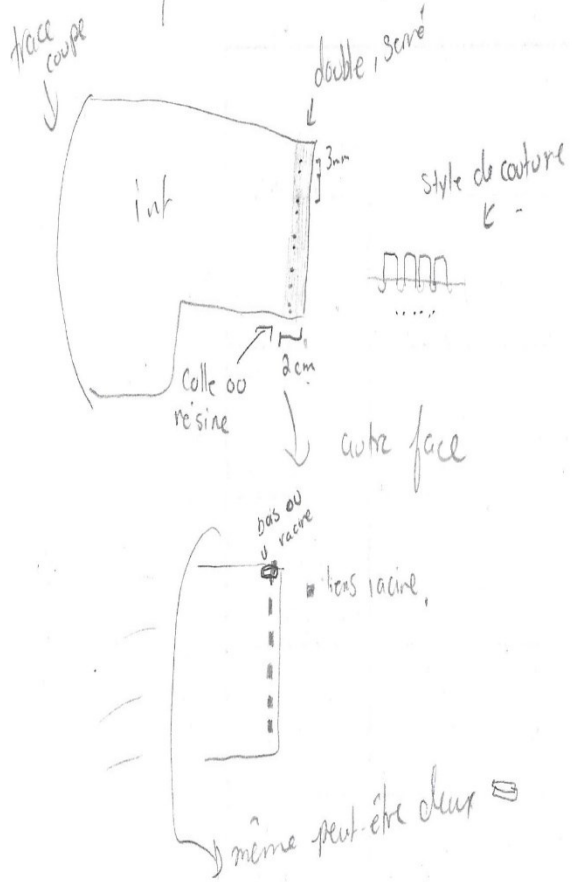 trace
coupe
double, serré
3mm
style de couture
int
2 cm
colle ou
résine
autre face
bois ou
racine
liens racine.
même peut-être deux